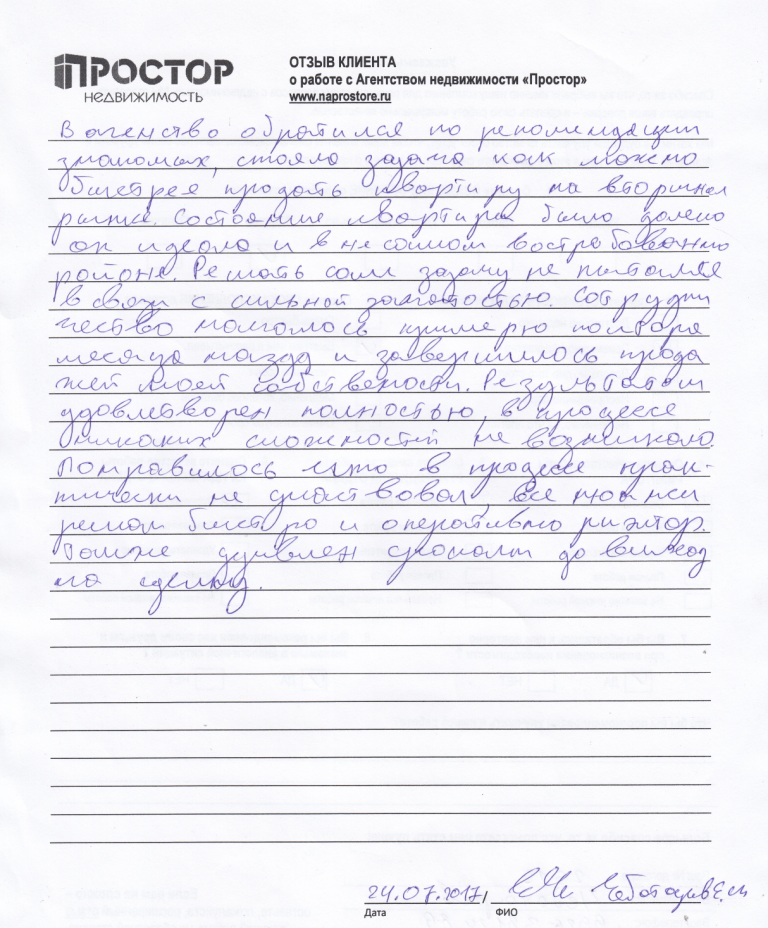 ПРОСТОР
НЕДВИЖИМОСТЬ
ОТЗЫВ КЛИЕНТА
о работе с Агентством недвижимости «Простор»
www.naprostore.ru
В агенство обратился по рекомендации
знакомых, стояла задача как можно
быстрея продать квартиру на вторичном
рынке. Состояние квартиры было далеко
от идеала и в не самом востребованно
районе. Решать сам задачу не пытался
в связи с сильной занятостью. Сотрудни
чество началось примерно полтора
месяца назад и завершилось прода
жей моей собствености. Результатом
удовлетворен полностью, в процессе
никаких сложностей не возникало.
Понравилось что в процессе прак-
тически не участвовал, все нюансы
решал быстро и оперативно риэлтор.
Также удивлен сроком до выхода
на сделку.
24.07.2017 /
Дата
ФИО